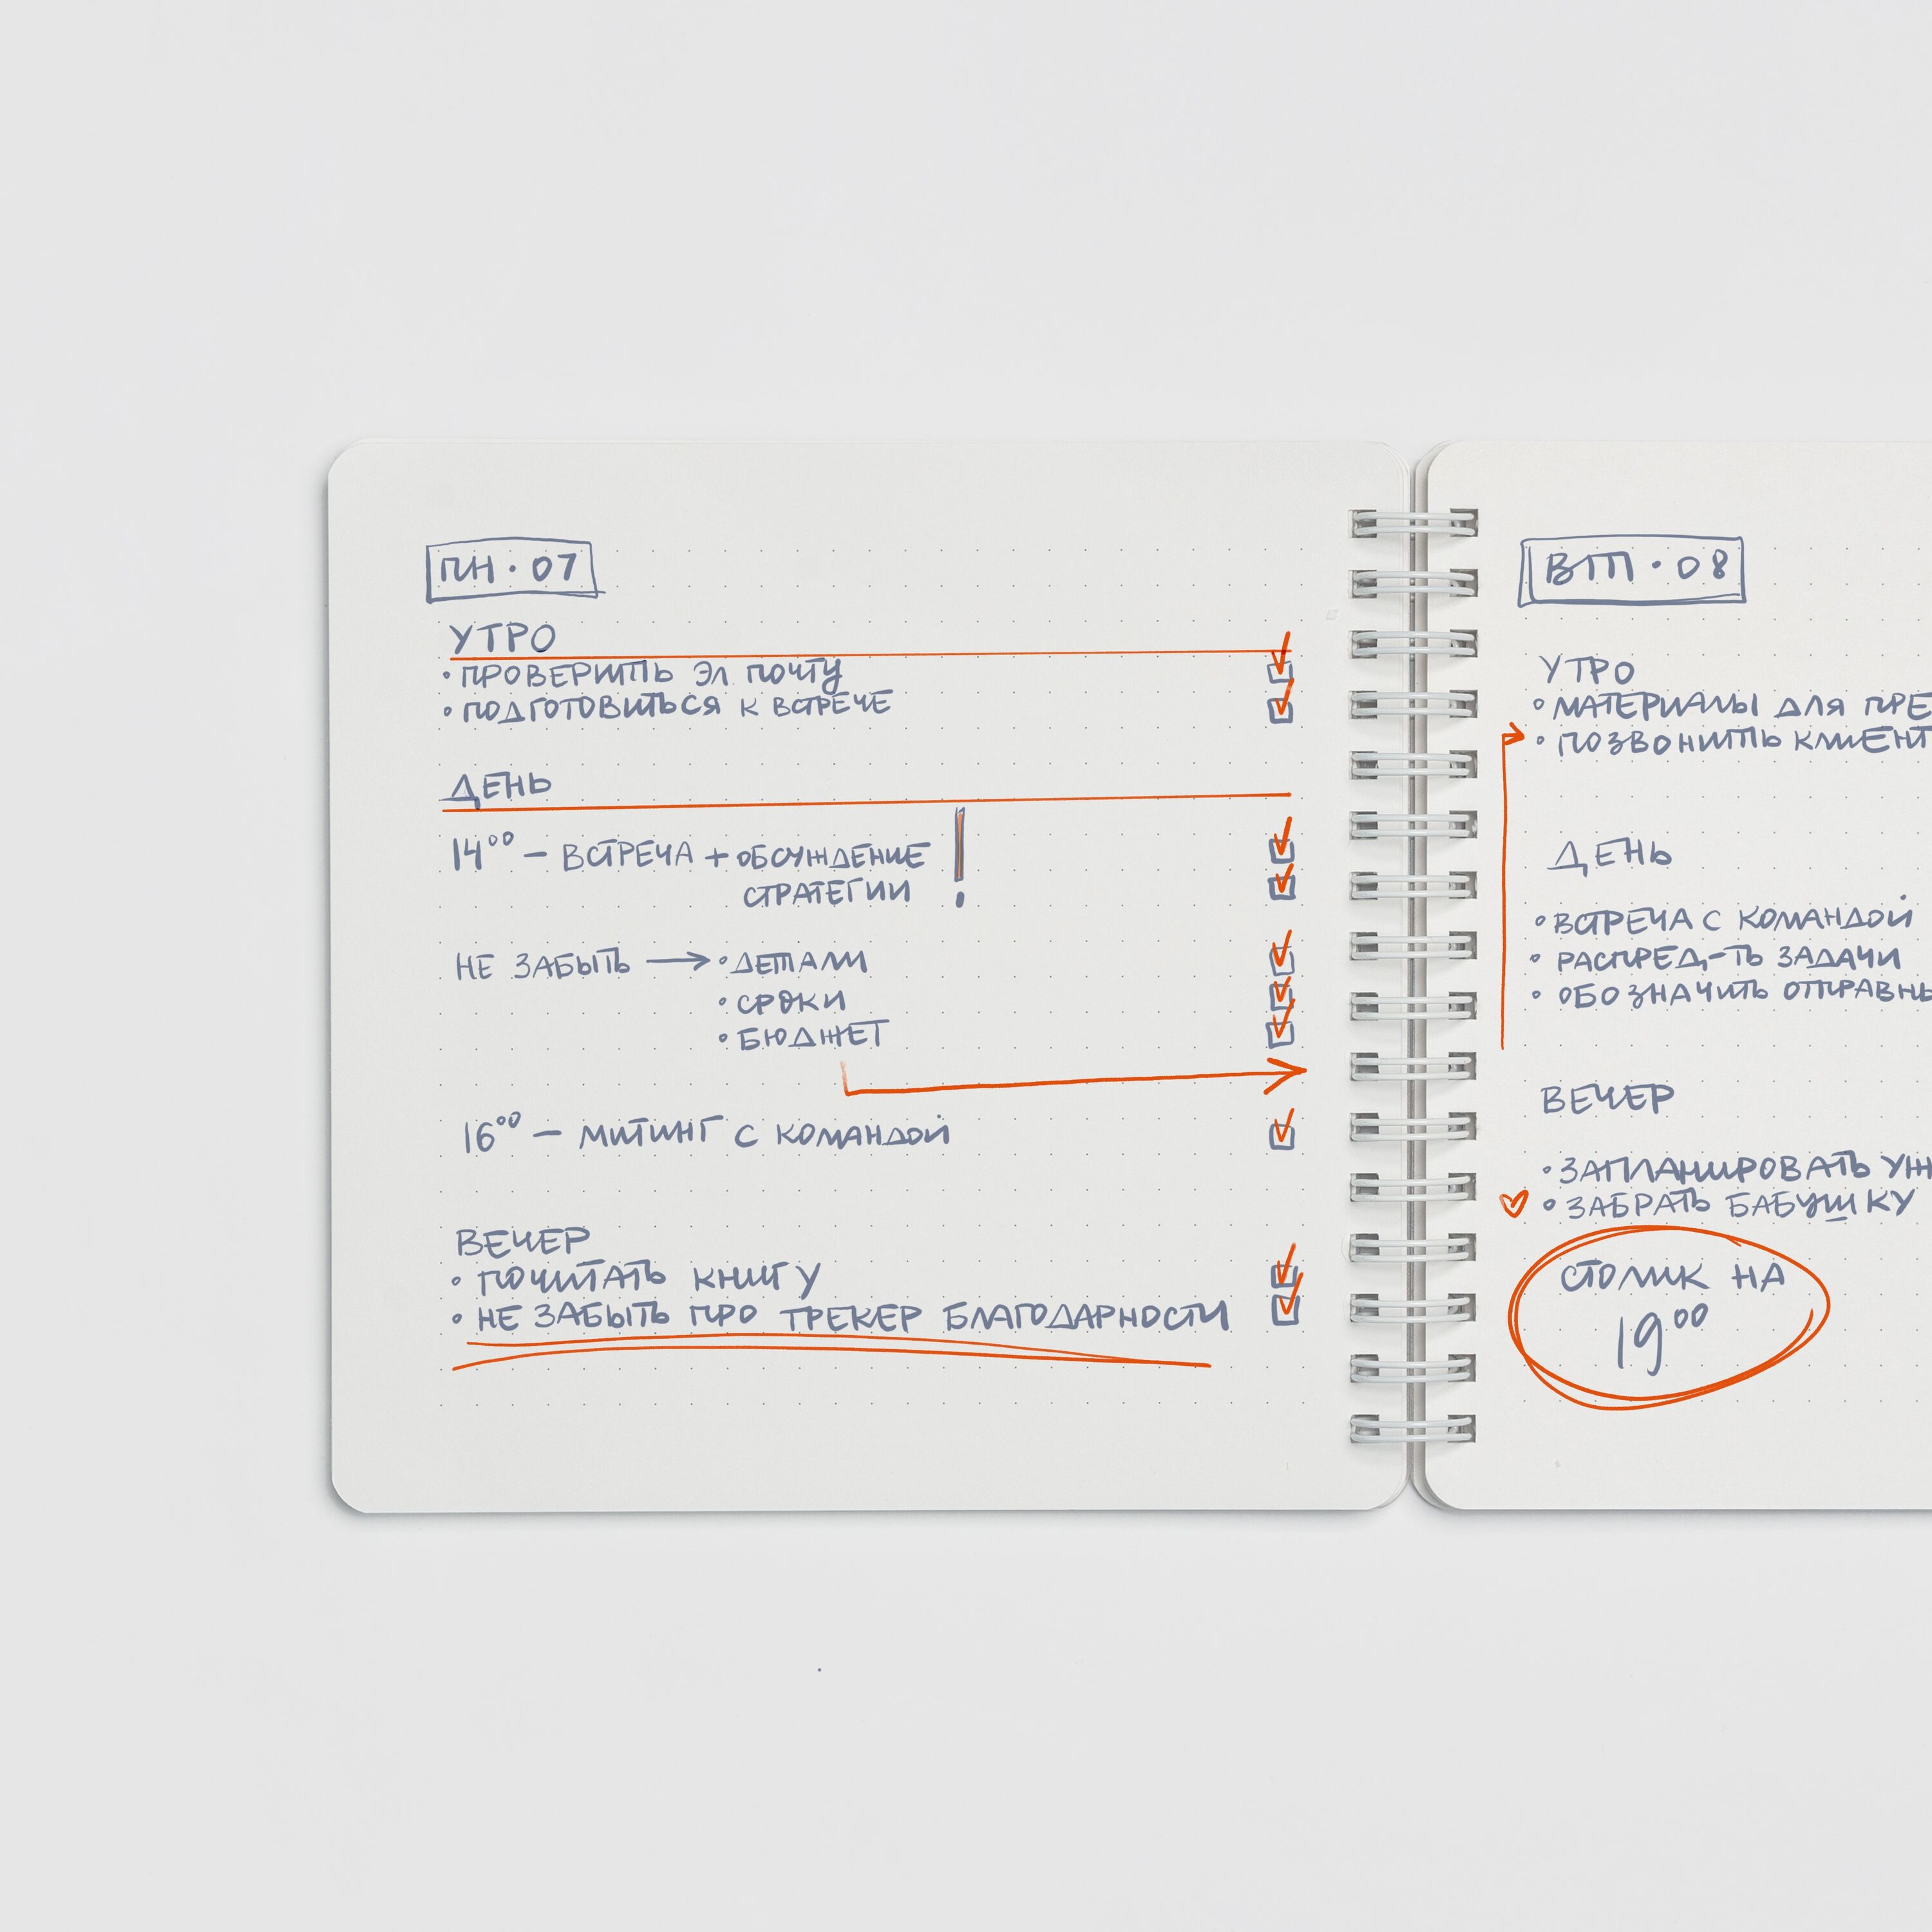 ПН · 07
УТРО
• ПРОВЕРИТЬ ЭЛ ПОЧТУ
• ПОДГОТОВИТЬСЯ К ВСТРЕЧЕ
ДЕНЬ
14⁰⁰ – ВСТРЕЧА + ОБСУЖДЕНИЕ
СТРАТЕГИИ !
НЕ ЗАБЫТЬ → • ДЕТАЛИ
• СРОКИ
• БЮДЖЕТ
16⁰⁰ – МИТИНГ С КОМАНДОЙ
ВЕЧЕР
• ПОЧИТАТЬ КНИГУ
• НЕ ЗАБЫТЬ ПРО ТРЕКЕР БЛАГОДАРНОСТИ
ВТ · 08
УТРО
• МАТЕРИАЛЫ ДЛЯ ПРЕ
• ПОЗВОНИТЬ КЛИЕНТ
ДЕНЬ
• ВСТРЕЧА С КОМАНДОЙ
• РАСПРЕД-ТЬ ЗАДАЧИ
• ОБОЗНАЧИТЬ ОТПРАВНЫ
ВЕЧЕР
• ЗАПЛАНИРОВАТЬ УЖ
• ЗАБРАТЬ БАБУШКУ
СТОЛИК НА
19⁰⁰